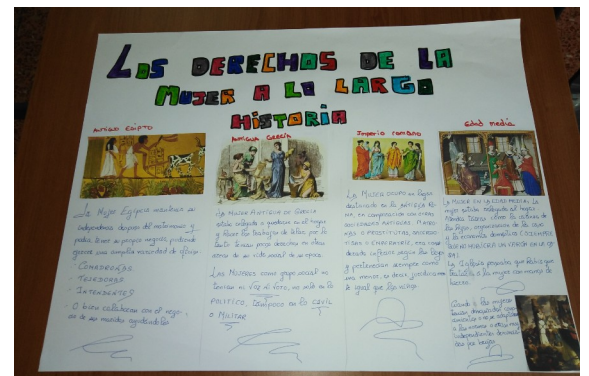 Los DERECHOS DE LA
MUJER A LO LARGO
HISTORIA
ANTIGUO EGIPTO
La Mujer Egipcia mantiene su
independencia después del matrimonio, y
podía llevar su propio negocio, pudiendo
ejercer una amplia variedad de oficios:
- COMADRONAS
- TEJEDORAS
- INTENDENTES
O bien colaboraban con el
de su marido ayudándole
ANTIGUA GRECIA
LA MUJER ANTIGUA DE GRECIA
estaba relegada a quedarse en el hogar
y hacer los trabajos de telas por lo
tanto tenían pocos derechos en otras
áreas de su vida social de su época.
LAS MUJERES como grupo social no
tenían ni VOZ NI VOTO, no sólo en lo
POLÍTICO, TAMPOCO en lo CIVIL
o MILITAR
Imperio romano
LA MUJER OCUPO un lugar
destacado en la ANTIGUA RO
MA, en comparación con otras
sociedades antiguas. MADRE
MAS O PROSTITUTAS, SACERDO
TISAS O EMPERATRIZ, era consi
derada inferior según las leyes
y pertenecían siempre como
una menor, es decir, jurídicamente
igual que los niños.
Edad media
LA MUJER EN LA EDAD MEDIA: La
mujer estaba relegada al hogar.
las labores de
los hijos, organizadoras de la casa
y la economía doméstica, COSÍAN, TEJ
UN CERDO EN LA CO
RRAL.
La Iglesia pensaba que había que
tratar a la mujer con mano de
hierro.
Cuando a las mujeres
tenían
a las normas o eran muy
independientes
das por brujas.